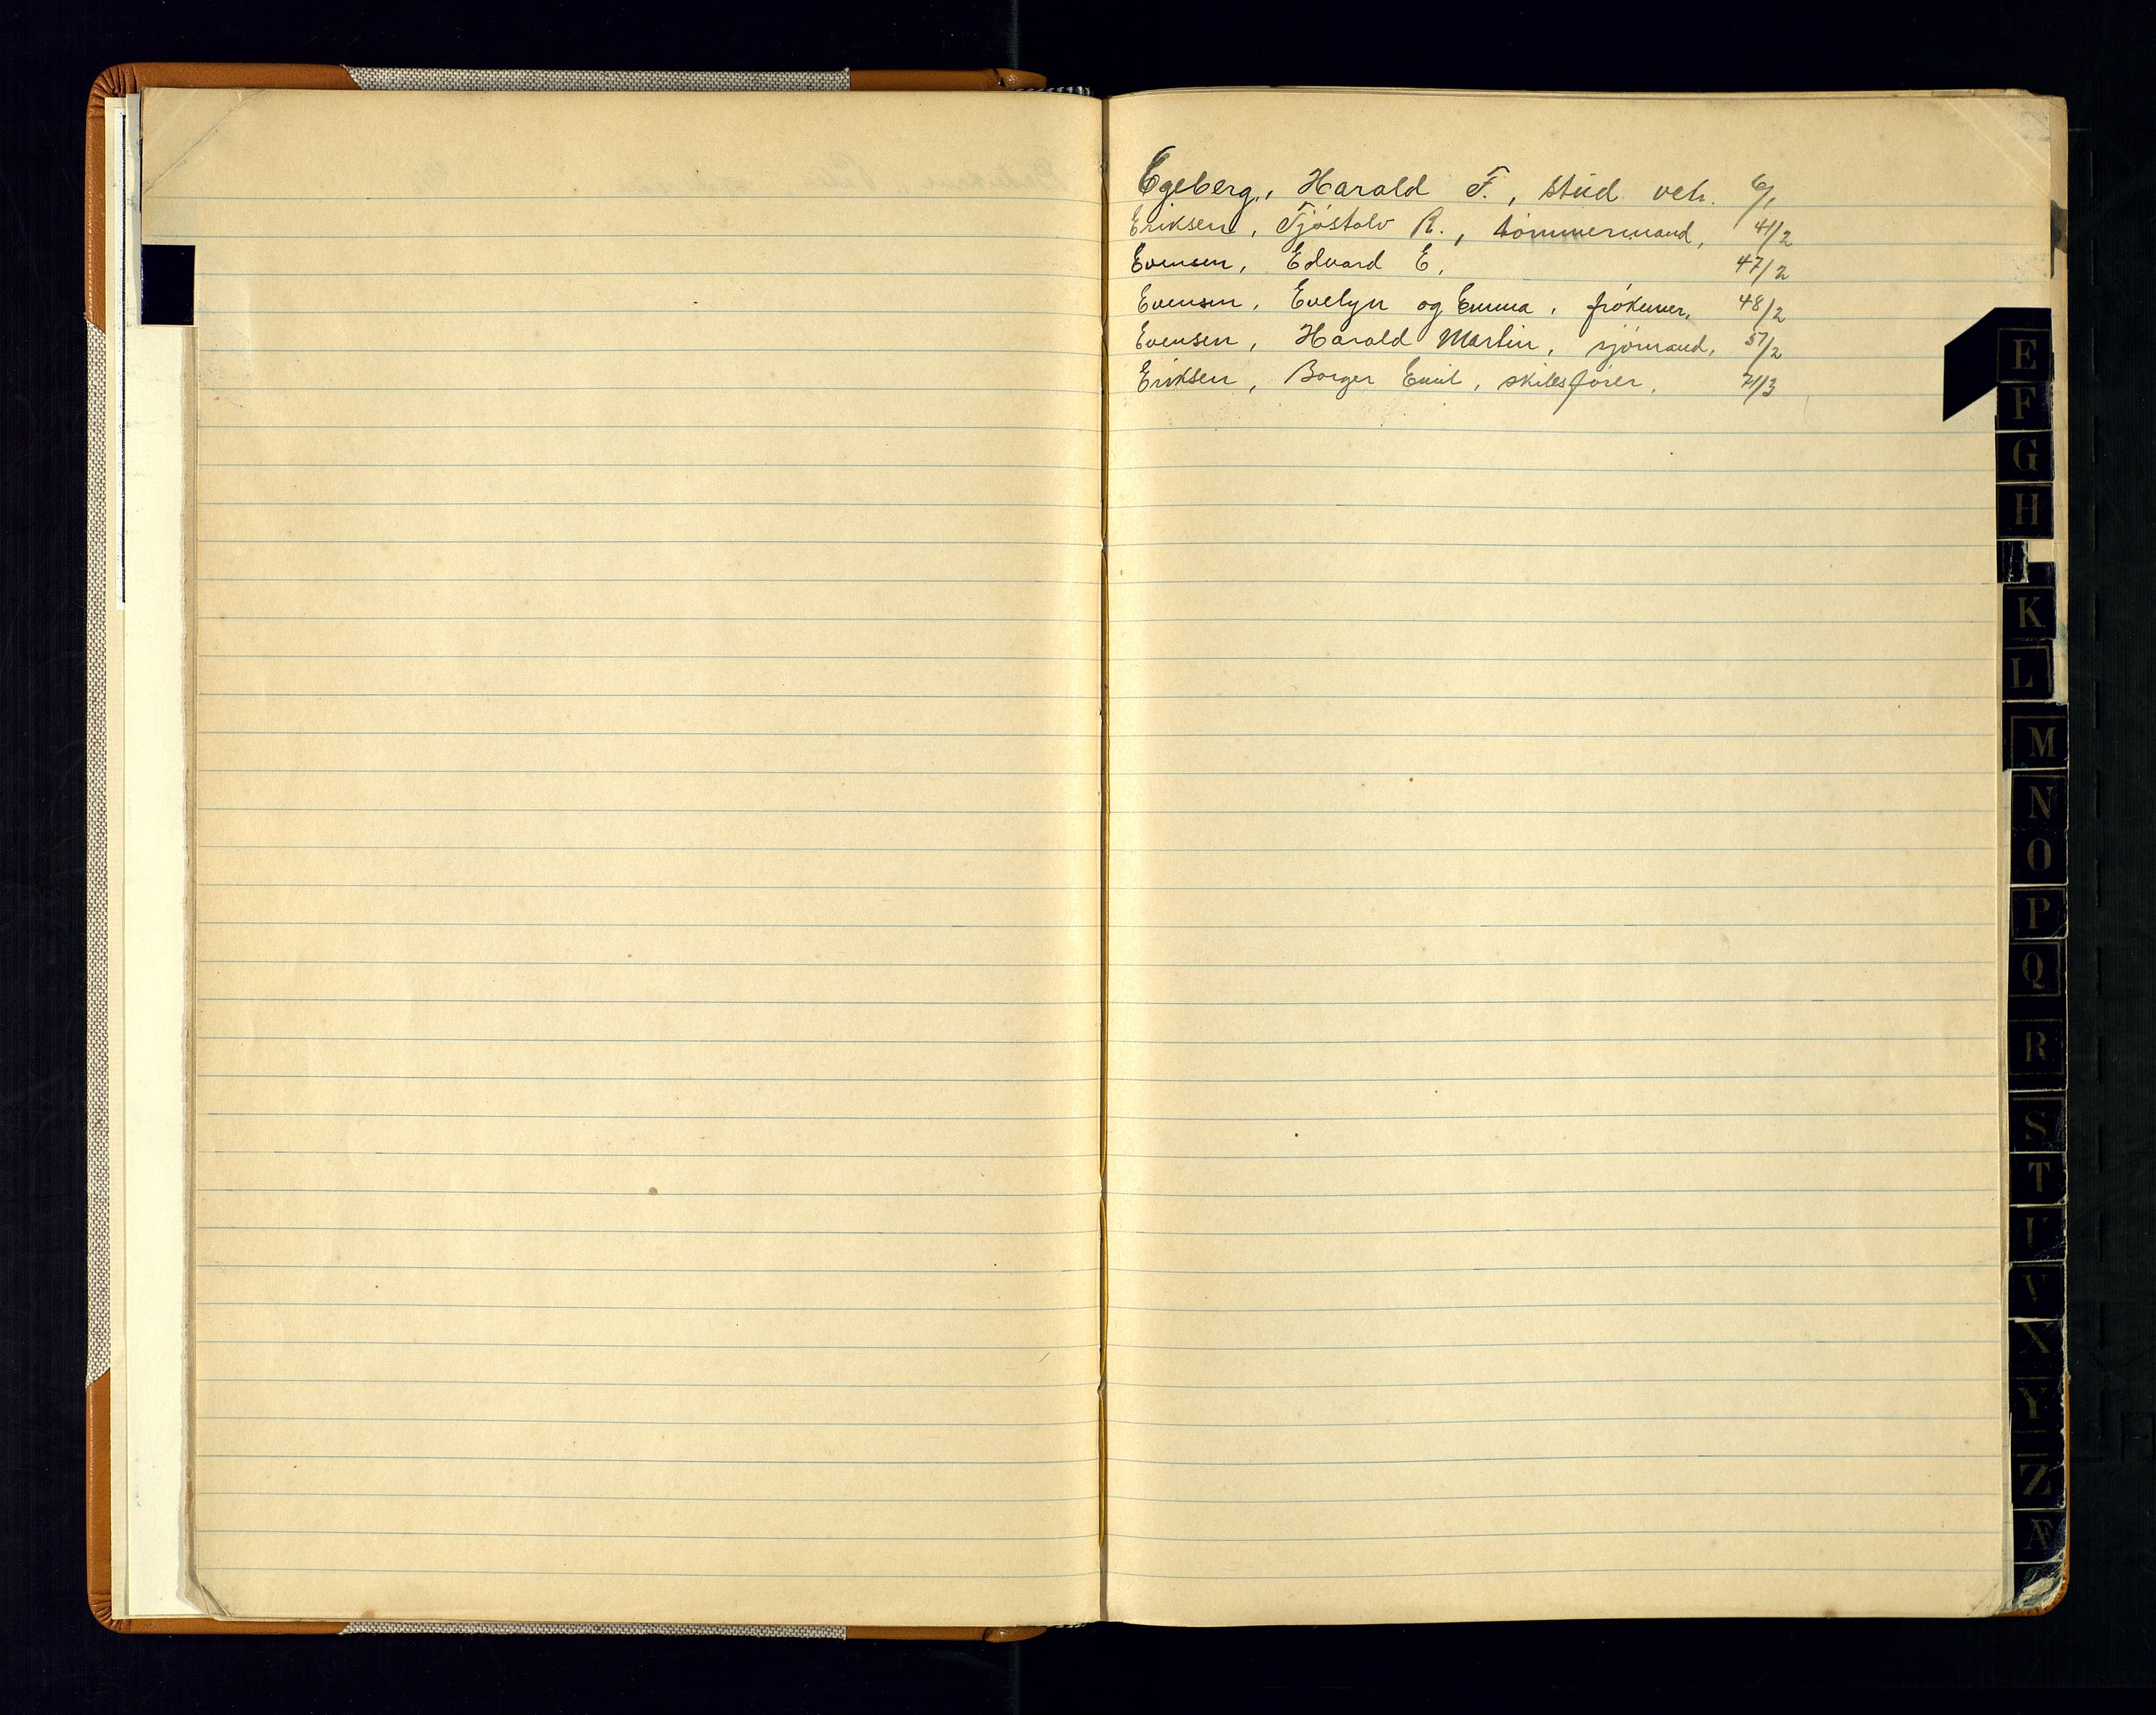 Egeberg, Harald F., stud. vet. 6/1
Eriksen, Tjöstolv R., tömmermand, 41/2
Evensen, Edvard E, 47/2
Evensen, Evelyn og Emma, frökener, 48/2
Evensen, Harald Martin, sjömand, 57/2
Eriksen, Borger Emil, skibsförer, 71/3
E
F
G
H
I
K
L
M
N
O
P
Q
R
S
T
U
V
X
Y
Z
Æ